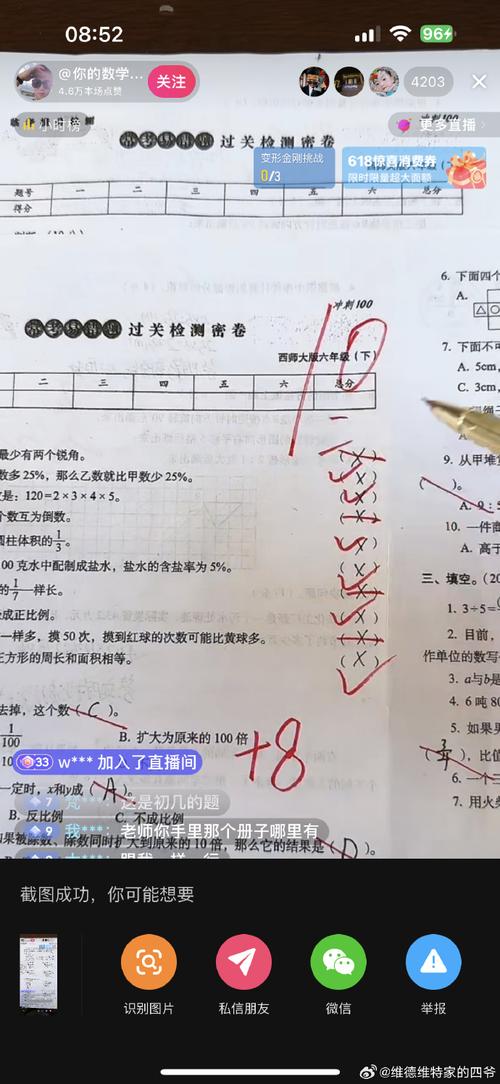 08:52
96
@你的数学...
4.6万本场点赞
关注
4203
小时榜
更多直播
冲刺100
过关检测密卷
变形金刚挑战
0/3
618惊喜消费券
限时限量超大面额
西师大版六年级(下)
题号 一 二 三 四 五 六 总分
得分
冲刺100
常考易错题 过关检测密卷
西师大版六年级(下)
10
二 三 四 五 六 总分
最少有两个锐角。 (×)
数多25%,那么乙数就比甲数少25%。 (×)
数是:120=2×3×4×5。 (×)
个数互为倒数。 (×)
圆柱体积的1/3。 (×)
00克水中配制成盐水,盐水的含盐率为5%。 (×)
的1/7一样长。 (×)
成正比例。 (×)
一样多,摸50次,摸到红球的次数可能比黄球多。 (×)
正方形的周长和面积相等。 (×)
+8
去掉,这个数(C)。
1/100 B. 扩大为原来的100倍
33 w*** 加入了直播间
一定时,x和y成(A)。
7 梵***:这是初几的题
B. 反比例 C. 不成比例
9 我***:老师你手里那个册子哪里有
如果被除数、除数同时扩大到原来的10倍,那么它的结果是(D)。
6. 下面四个
A.
7. 下面不可
A. 5cm,
C. 3cm,
9. 从甲堆
( )。
A. 9:5
10. 一件商
A. 高于
三、填空。(20
1. 3÷5=
2. 目前,
作单位的数写
3. a与b是
4. 6吨80
5. 如果男
(3/4),比值
6. 一个三
7. 用火
截图成功,你可能想要
识别图片
私信朋友
微信
举报
@维德维特家的四爷